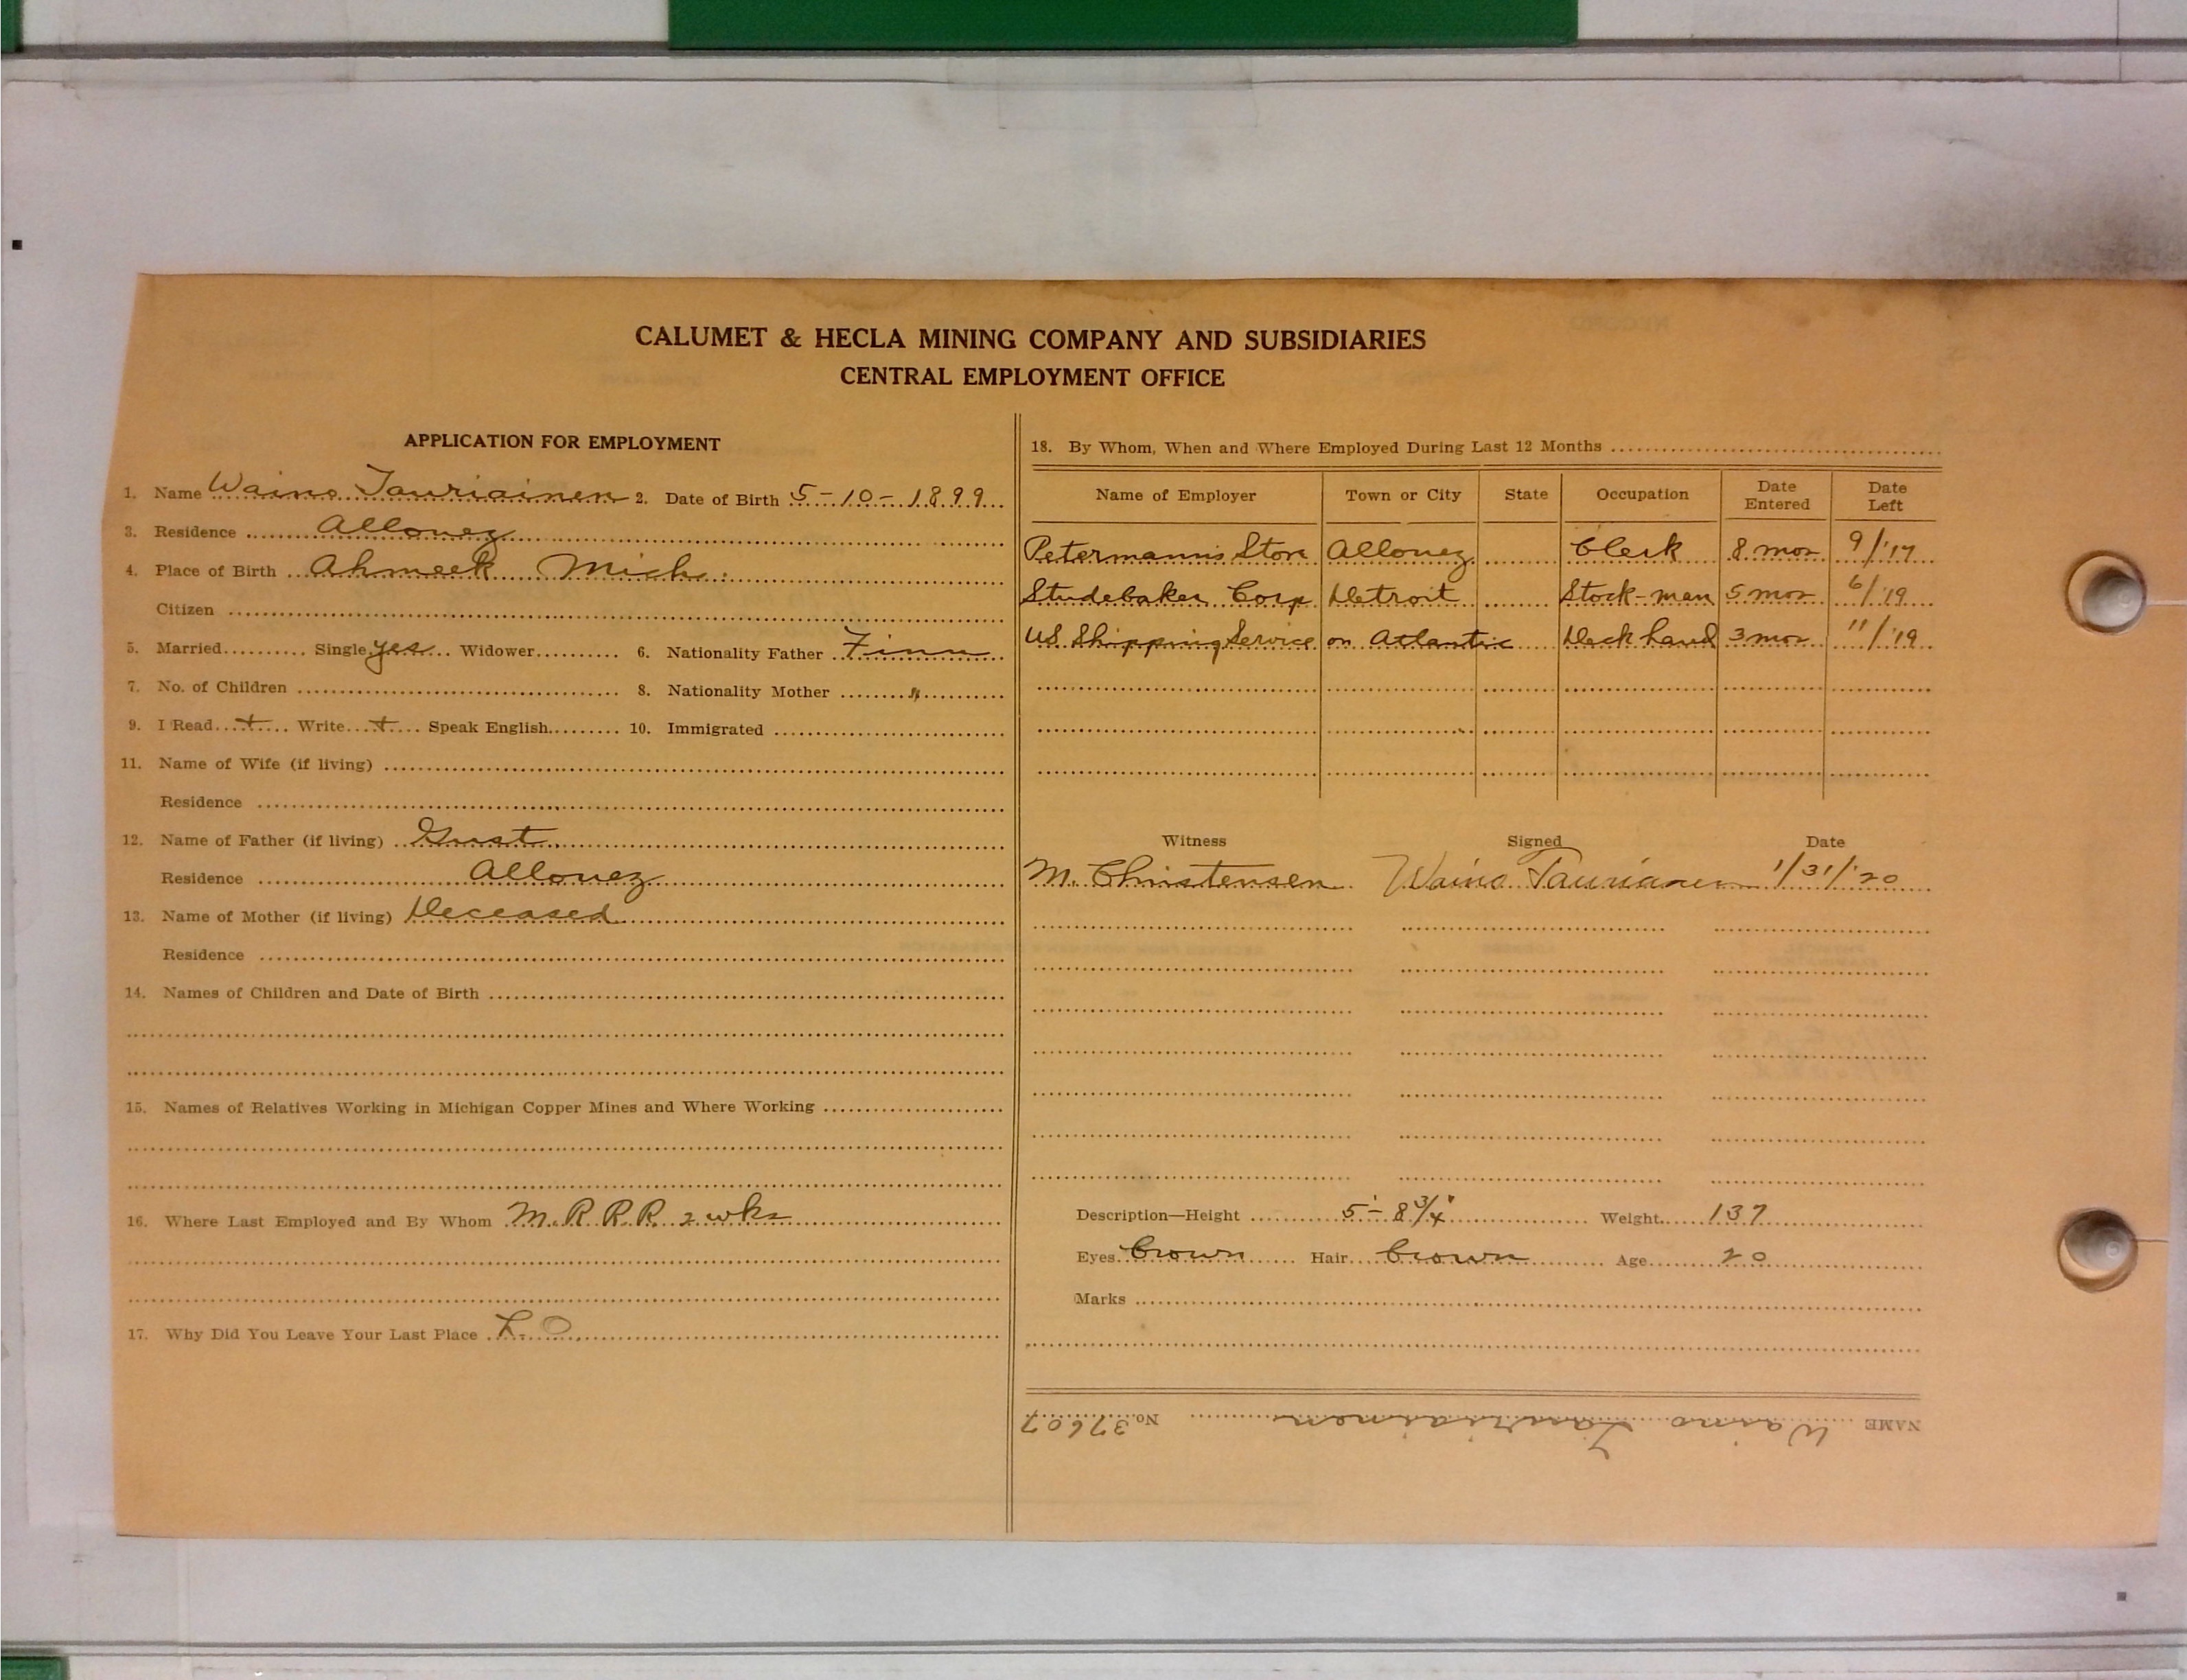 CALUMET & HECLA MINING COMPANY AND SUBSIDIARIES
CENTRAL EMPLOYMENT OFFICE
APPLICATION FOR EMPLOYMENT
1. Name Waino Tauriainen 2. Date of Birth 5-10-1899
3. Residence Allouez
4. Place of Birth Ahmeek Mich.
Citizen
5. Married Single yes Widower 6. Nationality Father Finn
7. No. of Children 8. Nationality Mother "
9. I Read + Write + Speak English 10. Immigrated
11. Name of Wife (if living)
Residence
12. Name of Father (if living) Gust
Residence Allouez
13. Name of Mother (if living) Deceased
Residence
14. Names of Children and Date of Birth
15. Names of Relatives Working in Michigan Copper Mines and Where Working
16. Where Last Employed and By Whom M.R.R.R. 2 wks
17. Why Did You Leave Your Last Place L.O.
18. By Whom, When and Where Employed During Last 12 Months
Name of Employer Town or City State Occupation Date Entered Date Left
Petermann's Store Allouez Clerk 8 mos 9/'17
Studebaker Corp Detroit Stock-man 5 mos 6/'19
U.S. Shipping Service on Atlantic Deck hand 3 mos 11/'19
Witness Signed Date
M. Christensen Waino Tauriainen 1/31/'20
Description—Height 5'-8 3/4" Weight 137
Eyes Brown Hair Brown Age 20
Marks
NAME Waino Tauriainen No. 37607